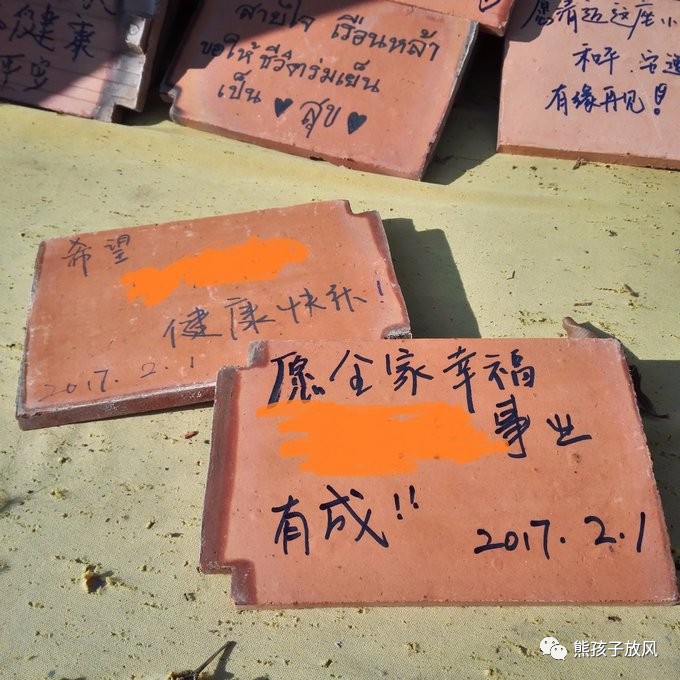 健康
平安
สายใจ เรือนหล้า
ขอให้ ชีวิตร่มเย็น
เป็น ♥ สุข ♥
愿
这座小
和平
有缘再见!
希望
健康快乐!
2017.2.1
愿全家幸福
事业
有成!!
2017.2.1
熊孩子放风